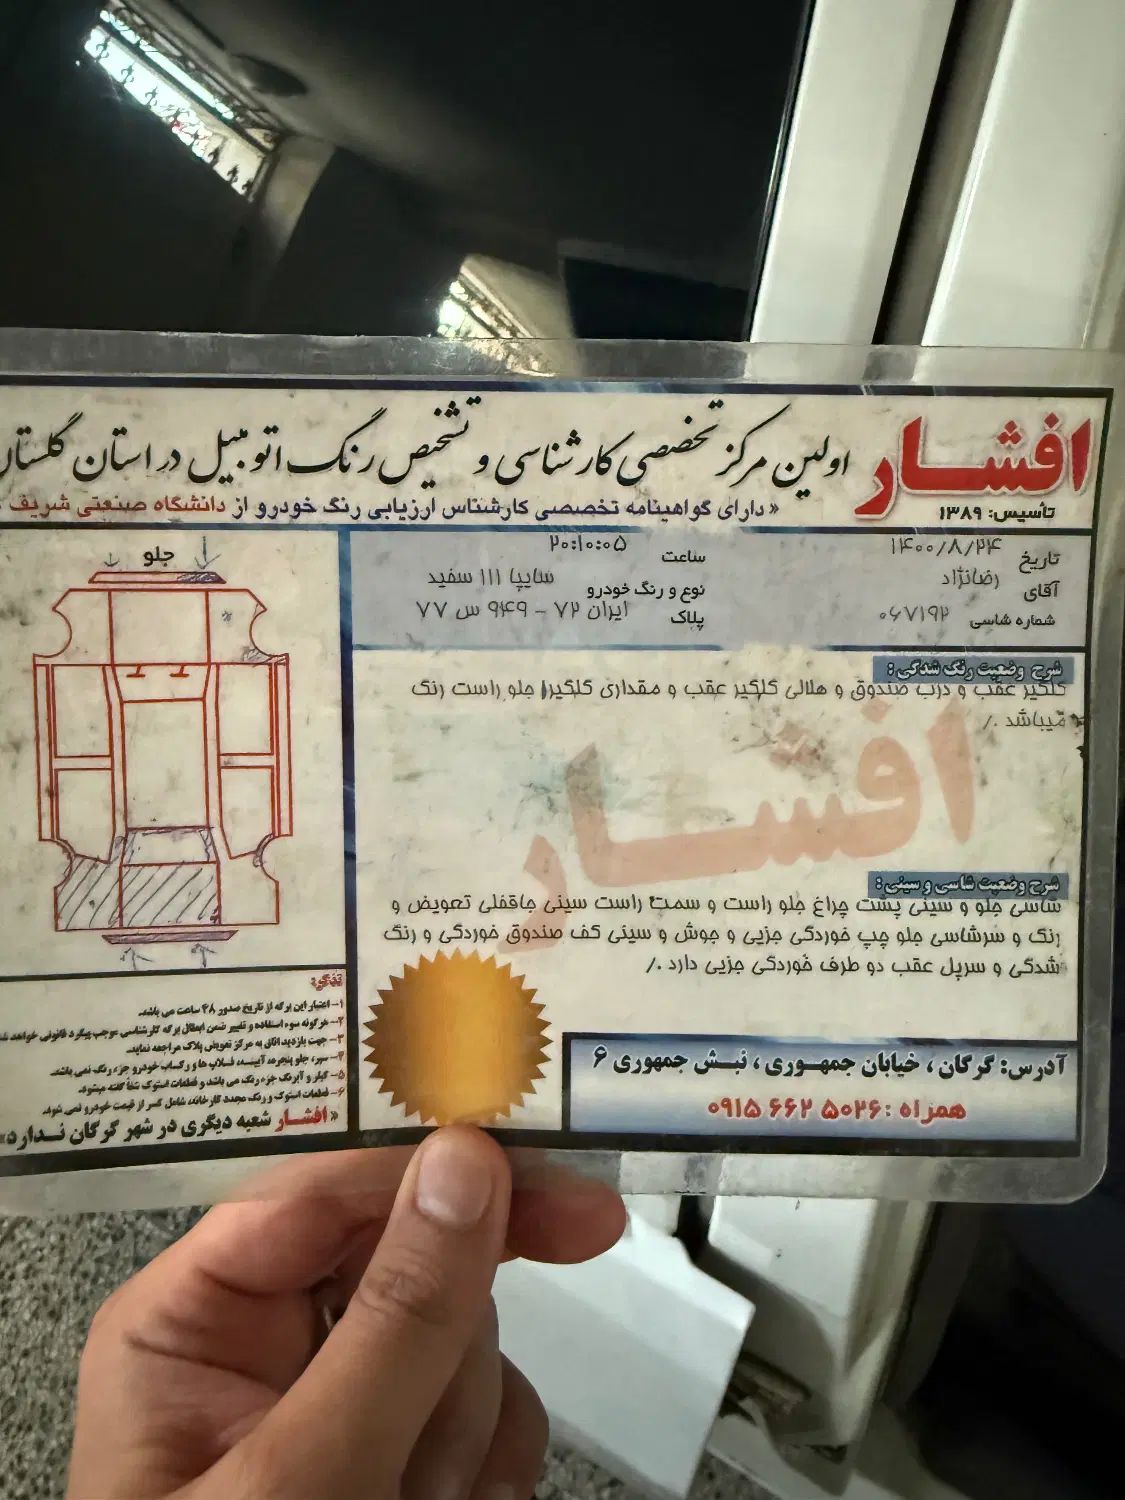 افشار
اولین مرکز تخصصی کارشناسی و تشخیص رنگ اتومبیل در استان گلستان
تأسیس: ۱۳۸۹
« دارای گواهینامه تخصصی کارشناس ارزیابی رنگ خودرو از دانشگاه صنعتی شریف
تاریخ ۱۴۰۰/۸/۲۴ ساعت ۲۰:۱۰:۰۵
آقای رضانژاد نوع و رنگ خودرو سایپا ۱۱۱ سفید
شماره شاسی ۰۶۷۱۹۲ پلاک ایران ۷۲ - ۹۴۹ س ۷۷
شرح وضعیت رنگ شدگی :
گلگیر عقب و درب صندوق و هلالی گلگیر عقب و مقداری گلگیر جلو راست رنگ
میباشد ./
افشار
شرح وضعیت شاسی و سینی :
شاسی جلو و سینی پشت چراغ جلو راست و سمت راست سینی جاقفلی تعویض و
رنگ و سرشاسی جلو چپ خوردگی جزیی و جوش و سینی کف صندوق خوردگی و رنگ
شدگی و سرپل عقب دو طرف خوردگی جزیی دارد ./
آدرس: گرگان ، خیابان جمهوری ، نبش جمهوری ۶
همراه :۰۹۱۵ ۶۶۲ ۵۰۲۶
جلو
تذکر:
۱- اعتبار این برگه از تاریخ صدور ۴۸ ساعت می باشد.
۲- هرگونه سوء استفاده و تغییر ضمن ابطال برگه کارشناسی موجب پیگرد قانونی خواهد شد
۳- جهت بازدید اتاق به مرکز تعویض پلاک مراجعه نماید.
۴- سپر، جلو پنجره، آیینه، قسلاب ها و رکاب خودرو جزء رنگ نمی باشد.
۵- گلر و آبرنگ جزء رنگ می باشد و قطعات استوک شفاً گفته میشود.
۶- قطعات استوک و رنگ مجدد کارخانه، شامل کسر از قیمت خودرو نمی شود.
« افشار شعبه دیگری در شهر گرگان ندارد»